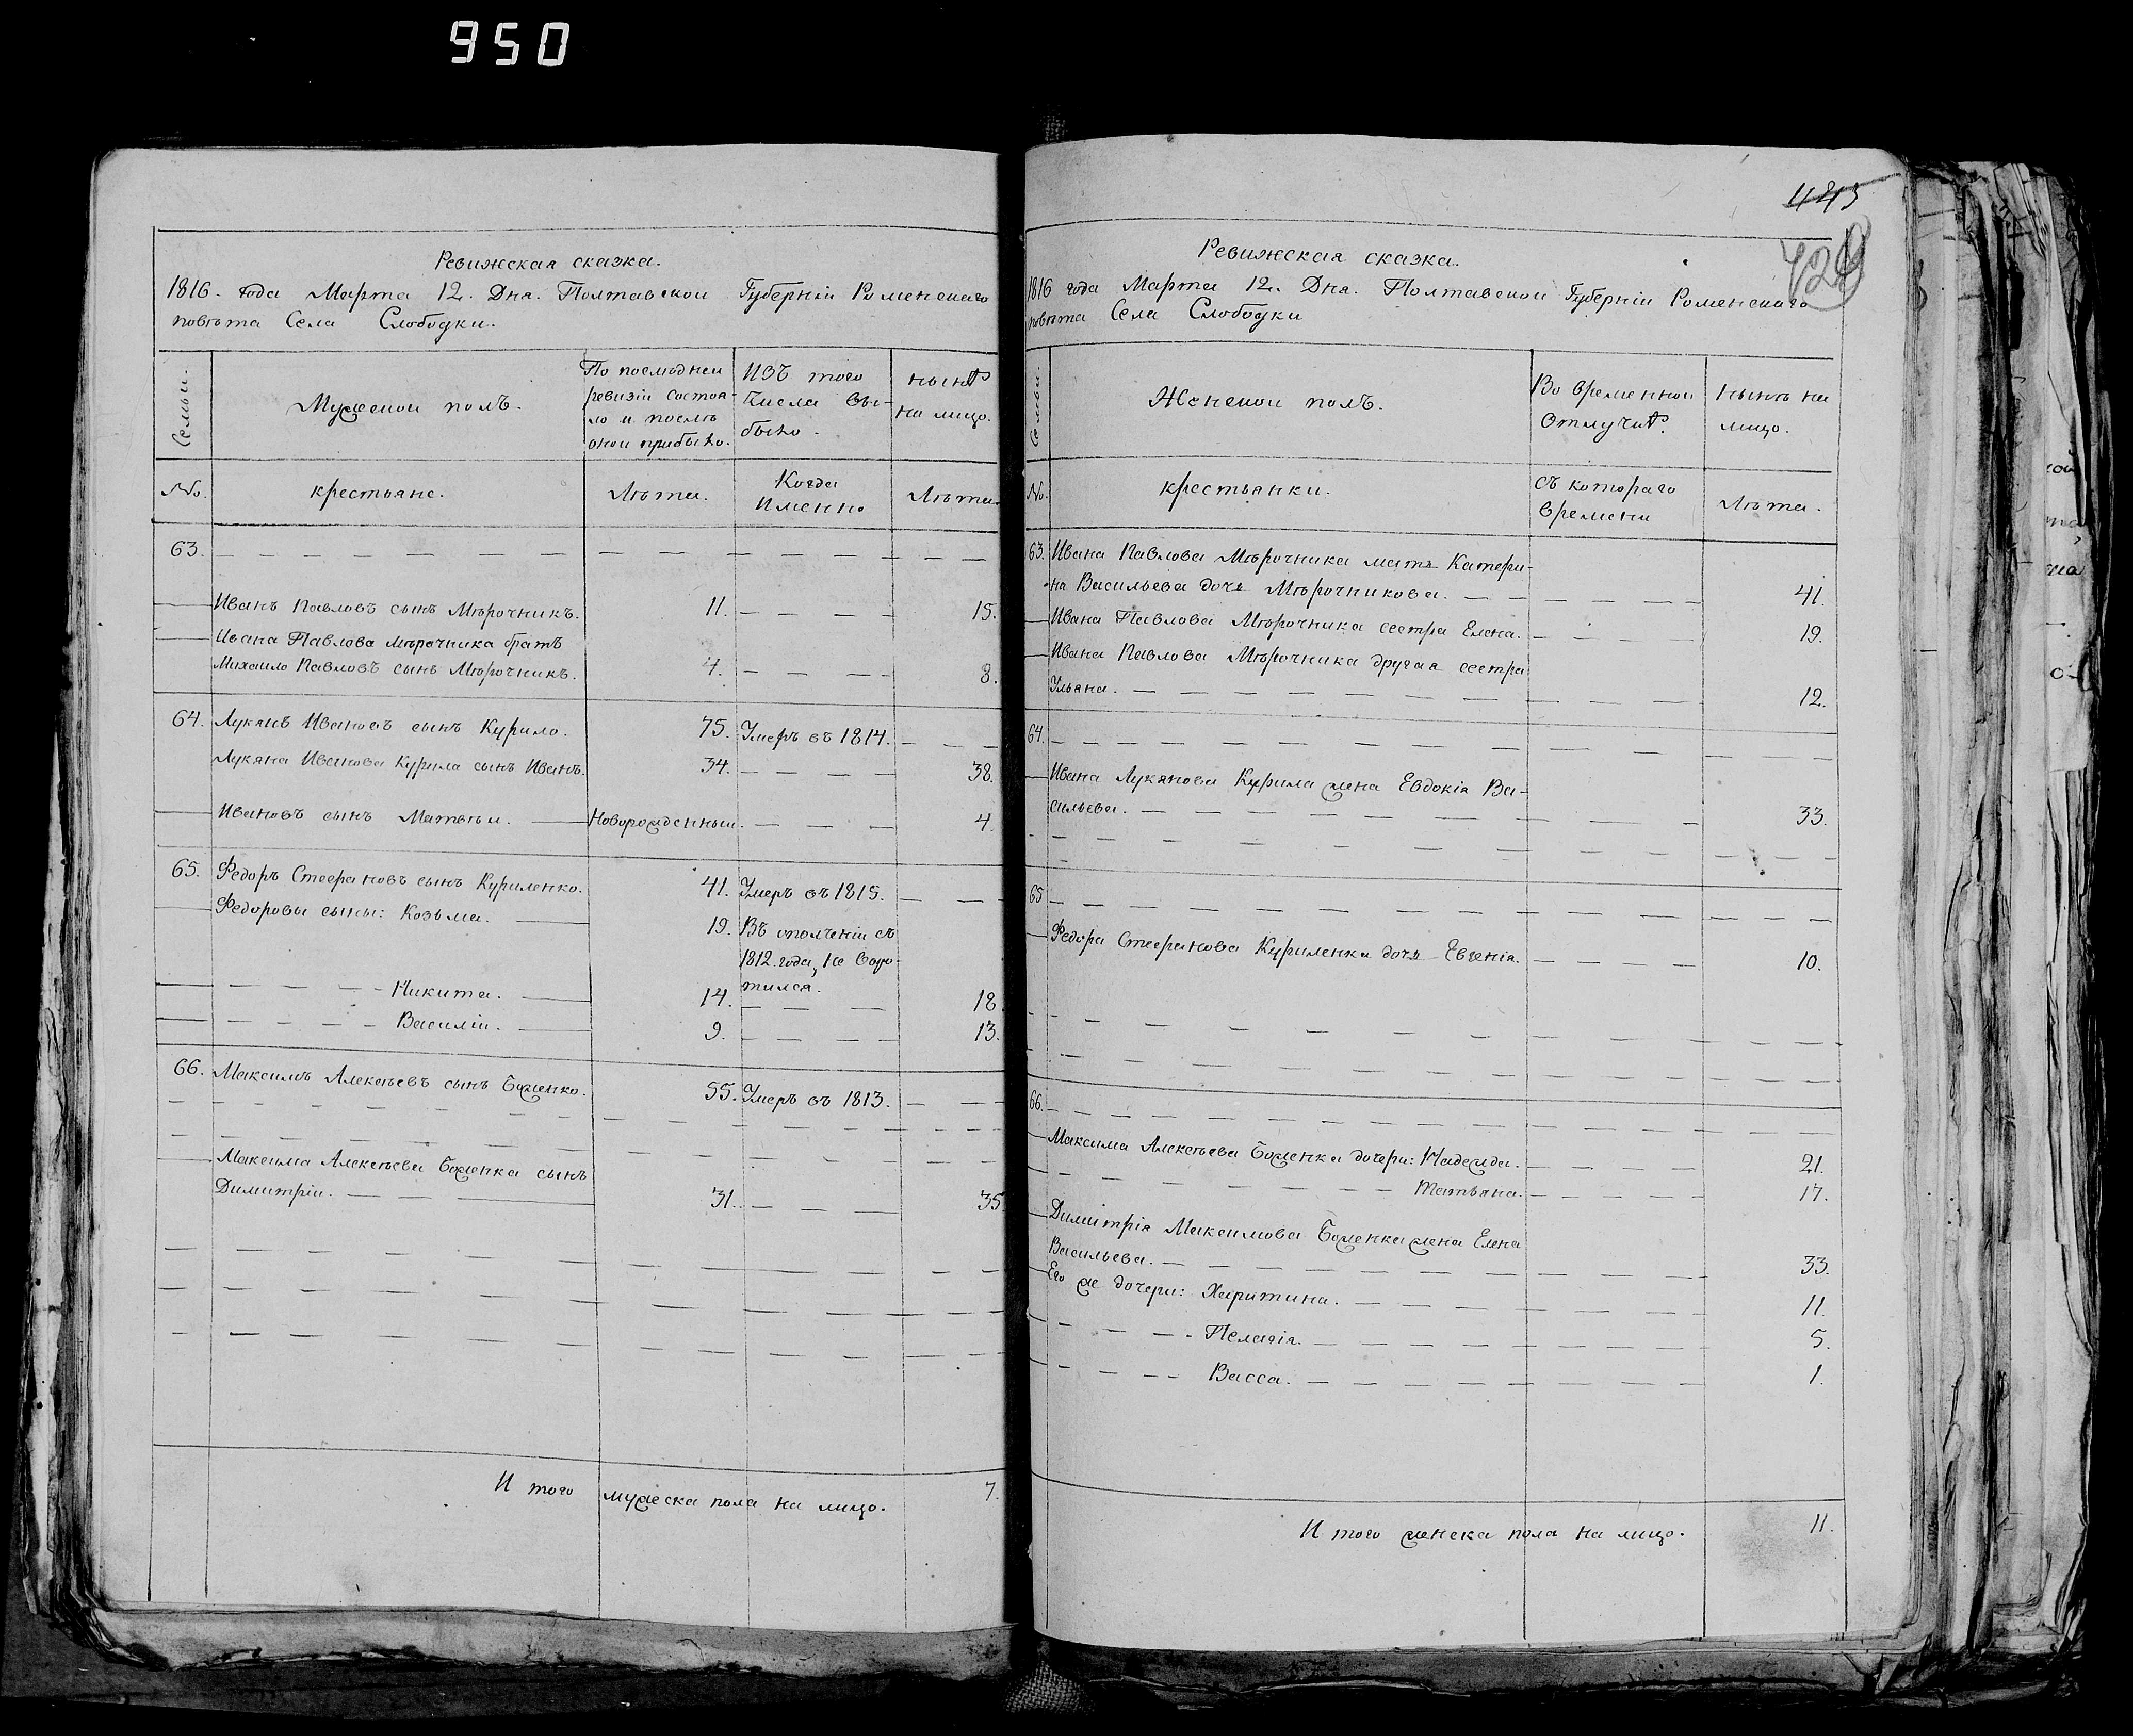 950
Ревижская сказка.
1816. года Марта 12. Дня. Полтавской Губерніи Роменскаго
повѣта Села Слободки.
Семьи.
Мужеской полъ.
По последней
ревизіи состоя-
ло и послѣ
оной прибыло.
Изъ того
числа вы-
было.
нынѣ
на лицо.
No.
крестьяне.
Лѣта.
Когда
именно
Лѣта
63.
Иванъ Павловъ сынъ Мѣрочникъ. 11. 15.
Ивана Павлова Мѣрочника братъ
Михайло Павловъ сынъ Мѣрочникъ. 4. 8.
64. Лукянъ Ивановъ сынъ Курило. 75. Умеръ въ 1814.
Лукяна Иванова Курила сынъ Иванъ. 34. 38.
Ивановъ сынъ Матвѣй. Новорожденный. 4.
65. Федоръ Стефановъ сынъ Куриленко. 41. Умеръ въ 1815.
Федоровы сыны: Козьма. 19. Въ ополченіи съ
1812. года, не воро-
тился.
Никита. 14. 18
Василій. 9. 13.
66. Максимъ Алексѣевъ сынъ Боженко. 55. Умеръ въ 1813.
Максима Алексѣева Боженка сынъ
Димитрій. 31. 35
И того мужеска пола на лицо. 7.
445
429
Ревижская сказка.
1816 года Марта 12. Дня. Полтавской Губерніи Роменскаго
повѣта Села Слободки
Семьи.
Женской полъ.
Во временной
отлучкѣ.
Нынѣ на
лицо.
No.
крестьянки.
Съ котораго
времени
Лѣта.
63. Ивана Павлова Мѣрочника мать Катери-
на Васильева дочь Мѣрочникова. 41.
Ивана Павлова Мѣрочника сестра Елена. 19.
Ивана Павлова Мѣрочника другая сестра
Ульяна. 12.
64.
Ивана Лукянова Курила жена Евдокія Ва-
сильева. 33.
65
Федора Стефанова Куриленка дочь Евгенія. 10.
66.
Максима Алексѣева Боженка дочери: Надежда. 21.
Татьяна. 17.
Димитрія Максимова Боженка жена Елена
Васильева. 33.
Его же дочери: Харитина. 11.
Пелагія. 5.
Васса. 1.
И того женска пола на лицо. 11.